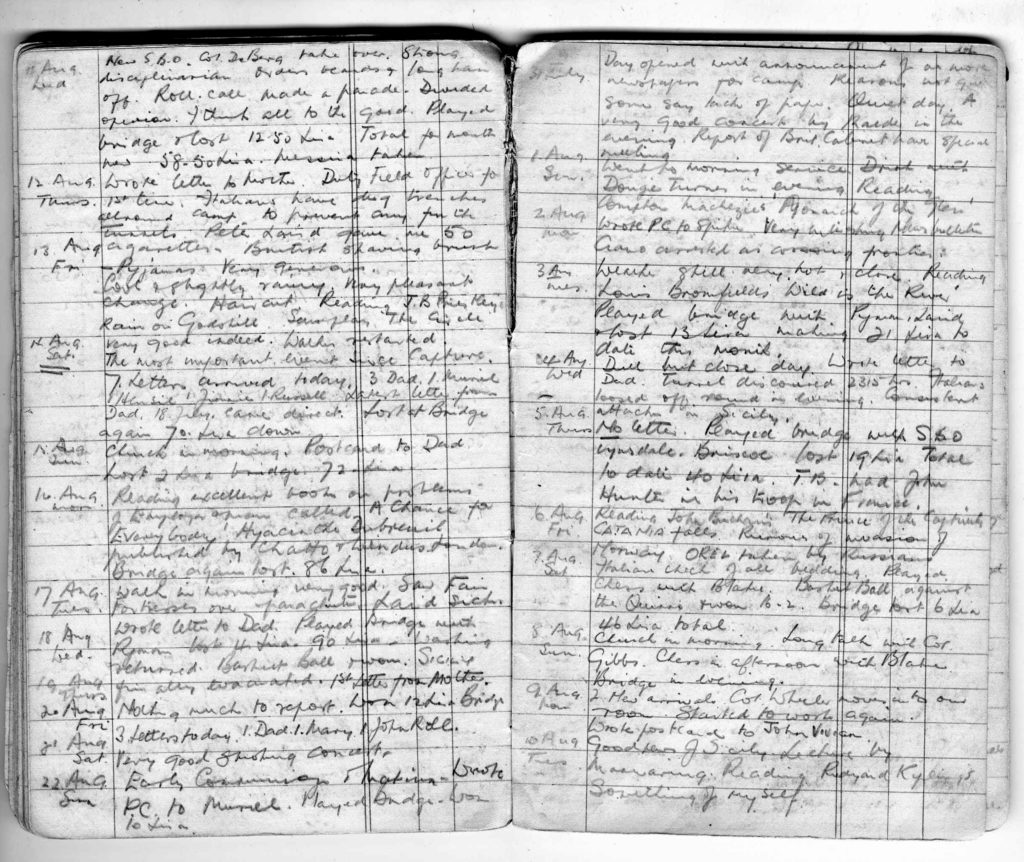 11 Aug. New S.B.O. Col. De Berg take over. Strong
Wed disciplinarian. Orders
off. Roll-call made a parade. Divided
opinion. I think all to the good. Played
bridge & lost 12.50 Lira. Total for month
now 58.50 Lira. Messina taken
12 Aug. Wrote letter to Mother. Duty Field Officer for
Thurs. 1st time. Italians have dug trenches
all round camp to prevent any further
tunnels. Pete Laird gave me 50
13 Aug cigarettes. British shaving brush
Fri - Pyjamas. Very generous.
Cool & slightly rainy. Very pleasant
change. Haircut. Reading J.B. Priestley
Rain on Godshill. Saw play "The Circle"
14 Aug. very good indeed. Walks restarted
Sat. The most important event since Capture.
7 Letters arrived today. 3 Dad. 1. Muriel
1 Russell. Latest letter from
Dad. 18 July. came direct. Lost at Bridge
again 70. Lira down
15. Aug Church in morning. Postcard to Dad
Sun. Lost 2 Lira bridge. 72 Lira
16. Aug Reading excellent book on problems
Mon. of called. A Chance for
Everybody. Hyacinthe Dubreuil
published by Chatto & Windus London.
Bridge again lost. 86 Lira.
17 Aug. Walk in morning very good. Saw
Tues. Fortresses over parachutes. Laird sick.
18 Aug Wrote letter to Dad. Played Bridge with
Wed. lost 4 Lira. 90 Lira. Washing
returned. Basket Ball & won. Sicily
19 Aug finally evacuated. 1st letter from Mother.
Thurs
20 Aug Nothing much to report. Won 12 Lira Bridge
Fri 3 Letters today. 1. Dad. 1. Mary. 1 John Roll.
21 Aug
Sat Very good concert.
22 Aug. Early Communion & Matins. Wrote
Sun P.C. to Muriel. Played Bridge. Won
10 Lira
31 July Day opened with announcement of no more
newspapers for camp. Reason not
Some say lack of paper. Quiet day. A
very good concert by in the
evening. Report of Brit. Cabinet have special
meeting
1. Aug Went to morning service. Drink with
Sun. Dougie Turner in evening. Reading
Compton Mackenzie's 'Monarch of the Glen'
2. Aug Wrote P.C. to Very interesting News bulletin
Mon Ciano arrested as crossing frontier.
3 Aug Weather still very hot & close. Reading
Tues. Louis Bromfield's 'Wild is the River'
Played bridge with Pyman, Laird
& lost 13 Lira making 21 Lira to
date this month.
4 Aug Dull but close day. Wrote letter to
Wed Dad. Tunnel discovered 2315 hrs. Italians
loosed off round in evening. Consistent
5. Aug. attacks on Sicily.
Thurs No letter. Played bridge with S.B.O
Briscoe lost 19 Lira Total
to date 40 Lira T.B. had John
Hunter in his troop in France.
6. Aug Reading John Buchan's The Prince of the Captivity
Fri CATANIA falls. Rumours of invasion of
7. Aug Norway. OREL taken by Russians
Sat Italian check of all bedding. Played
Chess with Blake. Basket Ball against
the Queens & won 16-2. Bridge lost 6 Lira
46 Lira total.
8. Aug. Church in morning. Long talk with Col.
Sun. Gibbs. Chess in afternoon with Blake
Bridge in evening.
9. Aug 2 New arrivals. Col. Wheeler moves into our
Mon room. Started to work again.
Wrote postcard to John Vivian.
10 Aug Good news of Sicily. Lecture by
Tues Mainwaring. Reading Rudyard Kyplings
Something of myself